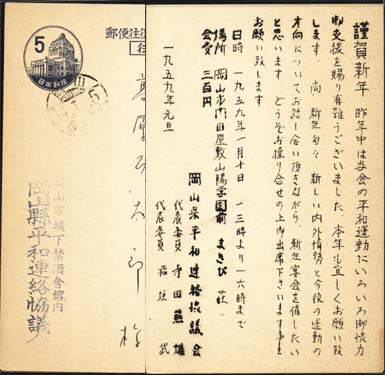 謹賀新年 昨年中は当会の平和運動にいろいろ御協力
御支援を賜り有難うございました。本年も宜しくお願い致
します 尚 新年匆々 新しい内外情勢と今後の運動の
方向についてお話し合い頂きながら 新年宴会を催したい
と思います どうぞお繰り合せの上御出席下さいます事を
お願い致します
日時 一九五九年一月十日 一三時より一六時まで
場所 岡山市門田屋敷山陽学園前 まきび荘
会費 三百円
岡山県平和連絡協議会
代表委員 寺田熊雄
代表委員 稲垣武
一九五九年元旦
郵便往復
5
日本郵便
太郎様
岡山市城下禁酒会館内
岡山縣平和連絡協議